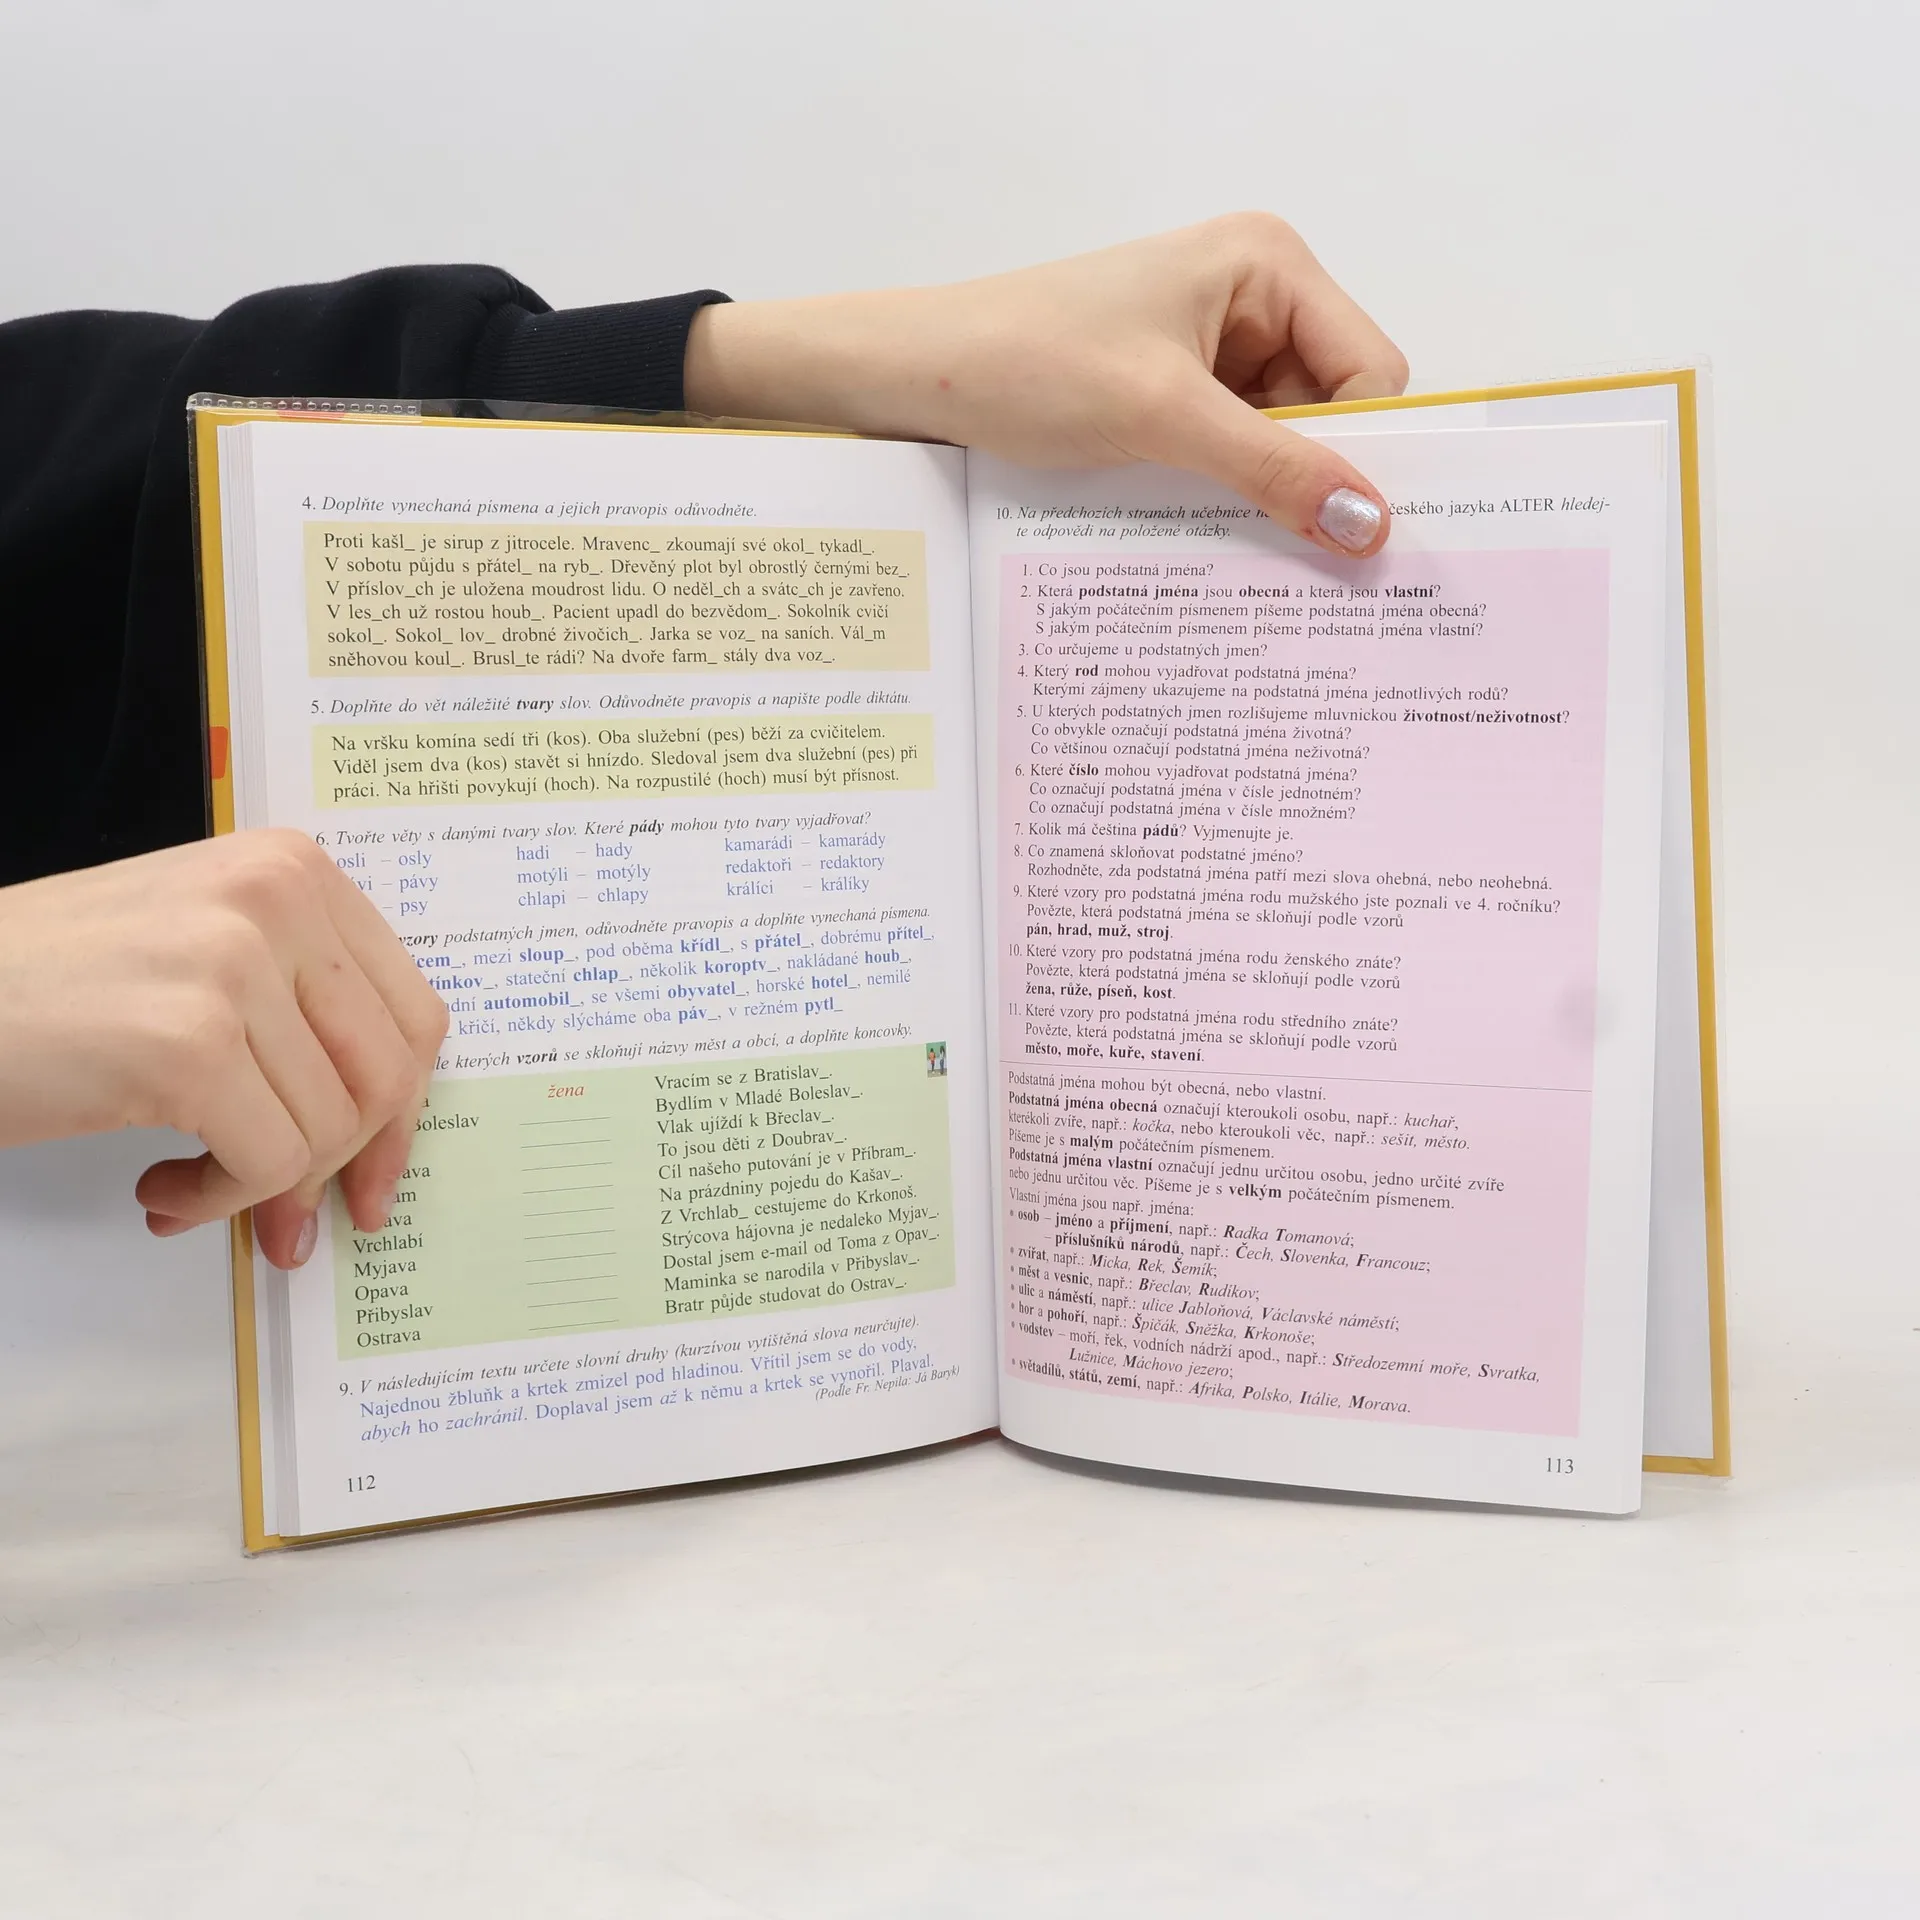 4. Doplňte vynechaná písmena a jejich pravopis odůvodněte.
Proti kašl_ je sirup z jitrocele. Mravenc_ zkoumají své okol_ tykadl_.
V sobotu půjdu s přátel_ na ryb_. Dřevěný plot byl obrostlý černými bez_.
V příslov_ch je uložena moudrost lidu. O neděl_ch a svátc_ch je zavřeno.
V les_ch už rostou houb_. Pacient upadl do bezvědom_. Sokolník cvičí
sokol_. Sokol_ lov_ drobné živočich_. Jarka se voz_ na saních. Vál_m
sněhovou koul_. Brusl_te rádi? Na dvoře farm_ stály dva voz_.
5. Doplňte do vět náležité tvary slov. Odůvodněte pravopis a napište podle diktátu.
Na vršku komína sedí tři (kos). Oba služební (pes) běží za cvičitelem.
Viděl jsem dva (kos) stavět si hnízdo. Sledoval jsem dva služební (pes) při
práci. Na hřišti povykují (hoch). Na rozpustilé (hoch) musí být přísnost.
6. Tvořte věty s danými tvary slov. Které pády mohou tyto tvary vyjadřovat?
osli – osly hadi – hady kamarádi – kamarády
– pávy motýli – motýly redaktoři – redaktory
– psy chlapi – chlapy králíci – králíky
vzory podstatných jmen, odůvodněte pravopis a doplňte vynechaná písmena.
mezi sloup_, pod oběma křídl_, s přátel_, dobrému přítel_,
stateční chlap_, několik koroptv_, nakládané houb_,
automobil_, se všemi obyvatel_, horské hotel_, nemilé
křičí, někdy slýcháme oba páv_, v režném pytl_
kterých vzorů se skloňují názvy měst a obcí, a doplňte koncovky.
žena Vracím se z Bratislav_.
Boleslav Bydlím v Mladé Boleslav_.
Vlak ujíždí k Břeclav_.
To jsou děti z Doubrav_.
Cíl našeho putování je v Příbram_.
Na prázdniny pojedu do Kašav_.
Vrchlabí Z Vrchlab_ cestujeme do Krkonoš.
Myjava Strýcova hájovna je nedaleko Myjav_.
Opava Dostal jsem e-mail od Toma z Opav_.
Přibyslav Maminka se narodila v Přibyslav_.
Ostrava Bratr půjde studovat do Ostrav_.
9. V následujícím textu určete slovní druhy (kurzívou vytištěná slova neurčujte).
Najednou žbluňk a krtek zmizel pod hladinou. Vřítil jsem se do vody,
abych ho zachránil. Doplaval jsem až k němu a krtek se vynořil. Plaval.
(Podle Fr. Nepila: Já Baryk)
112
10. Na předchozích stranách učebnice českého jazyka ALTER hledej-
te odpovědi na položené otázky.
1. Co jsou podstatná jména?
2. Která podstatná jména jsou obecná a která jsou vlastní?
S jakým počátečním písmenem píšeme podstatná jména obecná?
S jakým počátečním písmenem píšeme podstatná jména vlastní?
3. Co určujeme u podstatných jmen?
4. Který rod mohou vyjadřovat podstatná jména?
Kterými zájmeny ukazujeme na podstatná jména jednotlivých rodů?
5. U kterých podstatných jmen rozlišujeme mluvnickou životnost/neživotnost?
Co obvykle označují podstatná jména životná?
Co většinou označují podstatná jména neživotná?
6. Které číslo mohou vyjadřovat podstatná jména?
Co označují podstatná jména v čísle jednotném?
Co označují podstatná jména v čísle množném?
7. Kolik má čeština pádů? Vyjmenujte je.
8. Co znamená skloňovat podstatné jméno?
Rozhodněte, zda podstatná jména patří mezi slova ohebná, nebo neohebná.
9. Které vzory pro podstatná jména rodu mužského jste poznali ve 4. ročníku?
Povězte, která podstatná jména se skloňují podle vzorů
pán, hrad, muž, stroj.
10. Které vzory pro podstatná jména rodu ženského znáte?
Povězte, která podstatná jména se skloňují podle vzorů
žena, růže, píseň, kost.
11. Které vzory pro podstatná jména rodu středního znáte?
Povězte, která podstatná jména se skloňují podle vzorů
město, moře, kuře, stavení.
Podstatná jména mohou být obecná, nebo vlastní.
Podstatná jména obecná označují kteroukoli osobu, např.: kuchař,
kterékoli zvíře, např.: kočka, nebo kteroukoli věc, např.: sešit, město.
Píšeme je s malým počátečním písmenem.
Podstatná jména vlastní označují jednu určitou osobu, jedno určité zvíře
nebo jednu určitou věc. Píšeme je s velkým počátečním písmenem.
Vlastní jména jsou např. jména:
• osob – jméno a příjmení, např.: Radka Tomanová;
– příslušníků národů, např.: Čech, Slovenka, Francouz;
• zvířat, např.: Micka, Rek, Šemík;
• měst a vesnic, např.: Břeclav, Rudíkov;
• ulic a náměstí, např.: ulice Jabloňová, Václavské náměstí;
• hor a pohoří, např.: Špičák, Sněžka, Krkonoše;
• vodstev – moří, řek, vodních nádrží apod., např.: Středozemní moře, Svratka,
Lužnice, Máchovo jezero;
• světadílů, států, zemí, např.: Afrika, Polsko, Itálie, Morava.
113